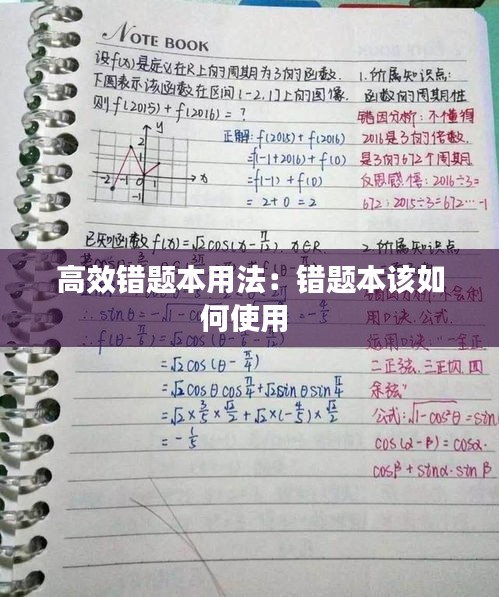 NOTE BOOK
设f(x)是定义在R上的周期为3的函数.
下图表示该函数在区间[-2,1]上的图像.
则f(2015)+f(2016)=?
y
2
1
-2 -1 0 1 x
-1
正解: f(2015)+f(2016)
=f(-1+2016)+f(0)
=f(-1)+f(0)
=2+0=2
1.所属知识点:
函数的周期性
错因分析:不懂得
2016是3的倍数.
是3的672个周期
反思感悟:2016÷3=
672;2015÷3=672…-1
已知函数f(x)=√2cos(x-π/12),x∈R.
2.所属知识点
高效错题本用法:错题本该如
何使用
∴sinθ=-√1-cos²θ
=-4/5
用口诀.公式.
∴f(θ-π/6)=√2cos(θ-π/6-π/12)
=√2cos(θ-π/4)
=√2cosθcosπ/4+√2sinθsinπ/4
=√2×3/5×√2/2+√2×(-4/5)×√2/2
=-1/5
运用口诀:"一全正
二正弦.三正切.四
余弦"
公式:√1-cos²θ=sin
cos(α-β)=cosα·
cosβ+sinα·sinβ